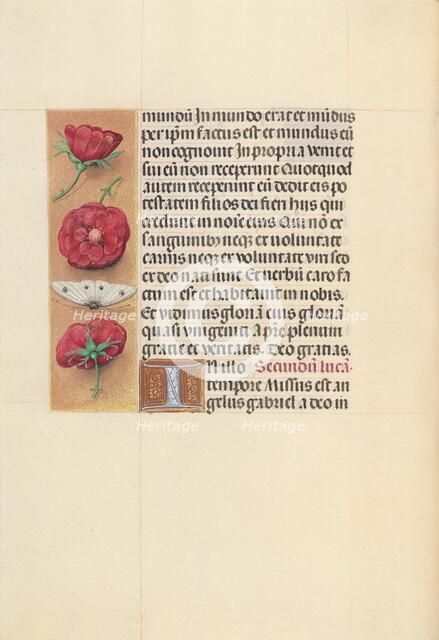 mundū In mundo erat et mūdus
per ipm̄ factus est et mundus eū
non cognouit In propria venit et
sui eū non receperunt Quotquod
autem receperunt eū dedit eis po
testatem filios dei fieri hiis qui
credunt in noīe eius Qui nō ex
sanguinibꝫ neqꝫ ex voluntate
carnis neqꝫ ex voluntate viri sed
ex deo nati sunt Et verbū caro fa
ctum est et habitauit in nobis.
Et vidimus gloriā eius gloriā
quasi vnigeniti a pr̄e plenum
gratie et veritatis. Deo gratias.
In illo Secundū lucā.
tempore Missus est an
gelus gabriel a deo in
Heritage Images
Heritage Images
Heritage
Heritage
Heritage